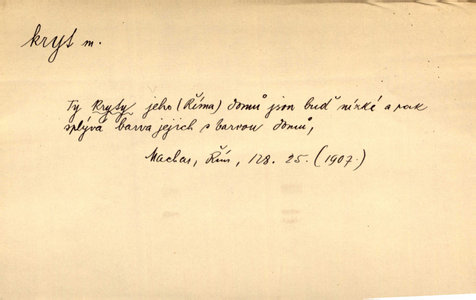 kryt m.
Ty kryty jeho (Říma) domů jsou buď nízké a pak
splývá barva jejich s barvou domů,
Machar, Řím, 128. 25. (1907.)